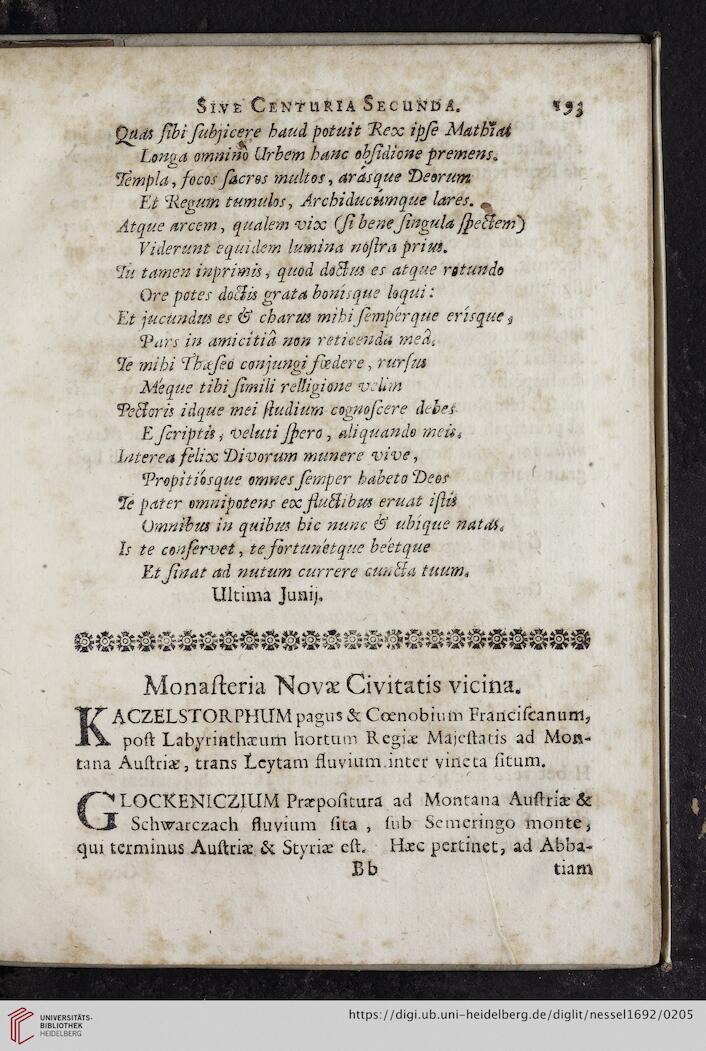 SIVE CENTURIA SECUNDA. 193
Quas ſibi ſubjicere haud potuit Rex ipſe Mathias
Longa omninò Urbem hanc obſidione premens.
Templa, focos ſacros multos, arásque Deorum
Et Regum tumulos, Archiducúmque lares.
Atque arcem, qualem vix (ſi bene ſingula ſpectem)
Viderunt equidem lumina noſtra prius.
Tu tamen inprimis, quod doctus es atque rotundo
Ore potes doctis grata bonísque loqui:
Et jucundus es & charus mihi ſempérque erísque,
Pars in amicitiâ non reticenda meâ.
Te mihi Thæſeo conjungi fœdere, rurſus
Méque tibi ſimili relligione velim
Pectoris idque mei ſtudium cognoſcere debes
E ſcriptis, veluti ſpero, aliquando meis.
Interea felix Divorum munere vive,
Propitiósque omnes ſemper habeto Deos
Te pater omnipotens ex fluctibus eruat iſtis
Omnibus in quibus hic nunc & ubique natas.
Is te conſervet, te fortunétque beétque
Et ſinat ad nutum currere cuncta tuum.
Ultima Junij.
Monaſteria Novæ Civitatis vicina.
KACZELSTORPHUM pagus & Cœnobium Franciſcanum,
poſt Labyrinthæum hortum Regiæ Majeſtatis ad Mon-
tana Auſtriæ, trans Leytam fluvium inter vineta ſitum.
GLOCKENICZIUM Præpoſitura ad Montana Auſtriæ &
Schwarczach fluvium ſita, ſub Semeringo monte,
qui terminus Auſtriæ & Styriæ eſt. Hæc pertinet, ad Abba-
Bb tiam
UNIVERSITÄTS-
BIBLIOTHEK
HEIDELBERG
https://digi.ub.uni-heidelberg.de/diglit/nessel1692/0205